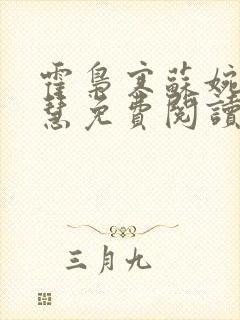 霍梟寒蘇婉
慧免費閱讀
三月九